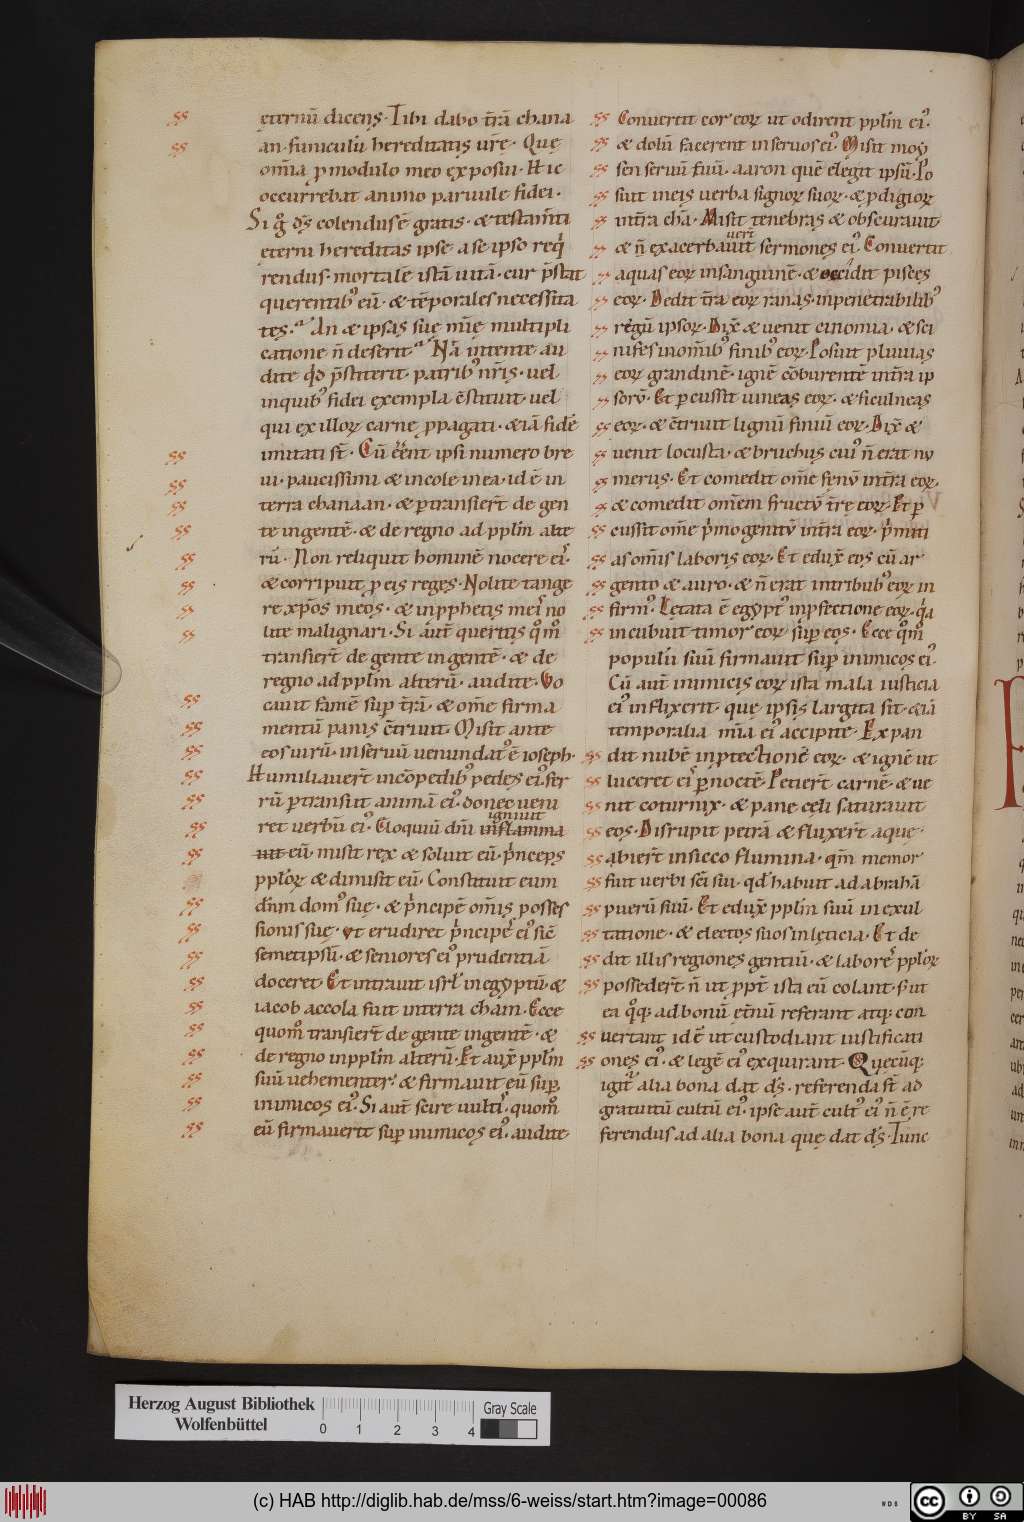 ęternū dicens· Tibi dabo t̄rā chana
an· funiculū hereditatis ur̄e· Quę
om̄ia p modulo meo exposui· Hic
occurrebat animo paruule fidei·
Si gͦ d̄s colendus ē gratis· & testam̄ti
ęterni hereditas ipse· a se ipso req̇
rendus· mortalē istā uitā· cur p̄stat
querentibꝰ eū· & tēporales necessita
tes· An & ipsas suę mīę multipli
catione n̄ deserit· Nā intente au
dite qd̄ p̄stiterit patribꝰ nr̄is· uel
in quibꝰ fidei exempla c̄stituit· uel
qui ex illoꝝ carne ꝓpagati· & iā fidē
imitati st̄· Cū eēnt ipsi numero bre
ui· paucissimi & incole in ea· id ē in
terra chanaan· & ꝑtransier̄t de gen
te in gentē· & de regno ad pplm̄ alte
rū· Non reliquit hominē nocere ei̾s·
& corripuit ꝑ eis reges· Nolite tange
re xp̄os meos· & in ꝓphetis mei̾s no
lite malignari· Si aut̄ queritis qͦm̄
transier̄t de gente in gentē· & de
regno ad pplm̄ alterū· audite· Vo
cauit famē suꝑ t̄rā· & om̄e firma
mentū panis c̄triuit· Misit ante
eos uirū· in seruū uenundatꝰ ē ioseph·
Humiliauer̄t in cōpedibꝰ pedes eiꝰ· fer
rū ꝑtransiit animā eiꝰ· donec ueni
ret uerbū eiꝰ· Eloquiū dn̄i inflamma
igniuit
uit eū· misit rex & soluit eū· p̄nceps
pploꝝ & dimisit eū· Constituit eum
dn̄m domꝰ suę· & p̄ncipē om̄is posses
sionis suę· vt erudiret p̄ncipes eiꝰ sic̄
semetipsū· & seniores eiꝰ prudentiā
doceret· Et intrauit isrl̄ in egyptū· &
iacob accola fuit in terra cham· Ecce
quom̄ transier̄t de gente in gentē· &
de regno in pplm̄ alterū· Et aux̄ pplm̄
suū uehementer· & firmauit eū suꝑ
inimicos eiꝰ· Si aut̄ scire uulti̾s· quom̄
eū firmauerit suꝑ inimicos eiꝰ· audite·
Conuertit cor eoꝝ ut odirent pplm̄ eiꝰ·
& dolū facerent in seruos eiꝰ· Misit moy
sen seruū suū· aaron quē elegit ipsū· Po
suit in eis uerba signoꝝ suoꝝ· & ꝓdigioꝝ
int̄ra chā· Misit tenebras & obscurauit
uer̄t
& n̄ exacerbauit sermones eiꝰ· Conuertit
aquas eoꝝ in sanguinē· & occidit pisces
eoꝝ· Dedit t̄ra eoꝝ ranas· in penetrabilibꝰ
regū ipsoꝝ· Dix̄ & uenit cinomia· & sci
nifes in om̄ibꝰ finibꝰ eoꝝ· Posuit pluuias
eoꝝ grandinē· ignē cōburentē int̄ra ip
soꝝ· Et ꝑcussit uineas eoꝝ· & ficulneas
eoꝝ· & c̄triuit lignū finiū eoꝝ· Dix̄ &
uenit locusta· & bruchus cuiꝰ n̄ erat nu
merus· Et comedit om̄e fenū int̄ra eoꝝ·
& comedit om̄em fructū t̄rę eoꝝ· Et ꝑ
cussit om̄e p̄mogenitū int̄ra eoꝝ· p̄miti
as om̄is laboris eoꝝ· Et edux̄ eos cū ar
gento & auro· & n̄ erat in tribubꝰ eoꝝ in
firmꝰ· Lętata ē egyptꝰ in ꝓfectione eoꝝ· qa
incubuit timor eoꝝ suꝑ eos· Ecce qͦm̄
populū suū firmauit suꝑ inimicos eiꝰ·
Cū aut̄ inimicis eoꝝ ista mala iusticia
eiꝰ inflixerit· quę ipsis largita sit· & iā
temporalia mīa eiꝰ accipite· Expan
dit nubē in ꝓtectionē eoꝝ· & ignē ut
luceret ei̾s ꝑ noctē· Petier̄t carnē· & ue
nit coturnix· & pane cęli saturauit
eos· Disrupit petrā & fluxer̄t aquę·
abier̄t in sicco flumina· qm̄ memor
fuit uerbi sc̄i sui· qd̄ habuit ad abrahā
puerū suū· Et edux̄ pplm̄ suū in exul
tatione· & electos suos in lęticia· Et de
dit illis regiones gentiū· & labores pploꝝ
posseder̄t· n̄ ut ppt̄ ista eū colant· s; ut
ea qͦq; ad bonū ęt̄nū referant atq; con
uertant· id ē ut custodiant iustificati
ones eiꝰ· & legē eiꝰ exquirant· Quęcūq;
igit̄ alia bona dat d̄s· referenda st̄ ad
gratuitū cultū eiꝰ· ipse aut̄ cultꝰ eiꝰ n̄ ē re
ferendus ad alia bona quę dat d̄s· Tunc
Herzog August Bibliothek
Wolfenbüttel
0 1 2 3 4
Gray Scale
(c) HAB http://diglib.hab.de/mss/6-weiss/start.htm?image=00086
cc BY SA